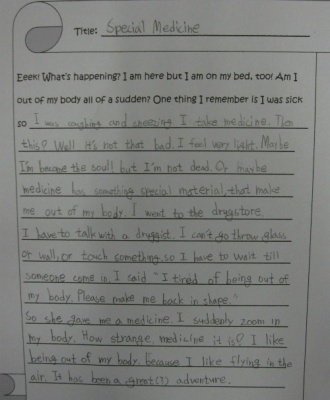 Title: Special Medicine
Eeek! What's happening? I am here but I am on my bed, too! Am I
out of my body all of a sudden? One thing I remember is I was sick
so I was coughing and sneezing I take medicine. Then
this? Well it's not that bad. I feel very light. Maybe
I'm become the soul! but I'm not dead. Or maybe
medicine has something special material, that make
me out of my body. I went to the drugstore.
I have to talk with a druggist. I can't go throw glass
or wall, or touch something. so I have to wait till
someone come in. I said "I tired of being out of
my body. Please make me back in shape."
So she gave me a medicine. I suddenly zoom in
my body. How strange medicine it is? I like
being out of my body. because I like flying in the
air. It has been a great(?) adventure.